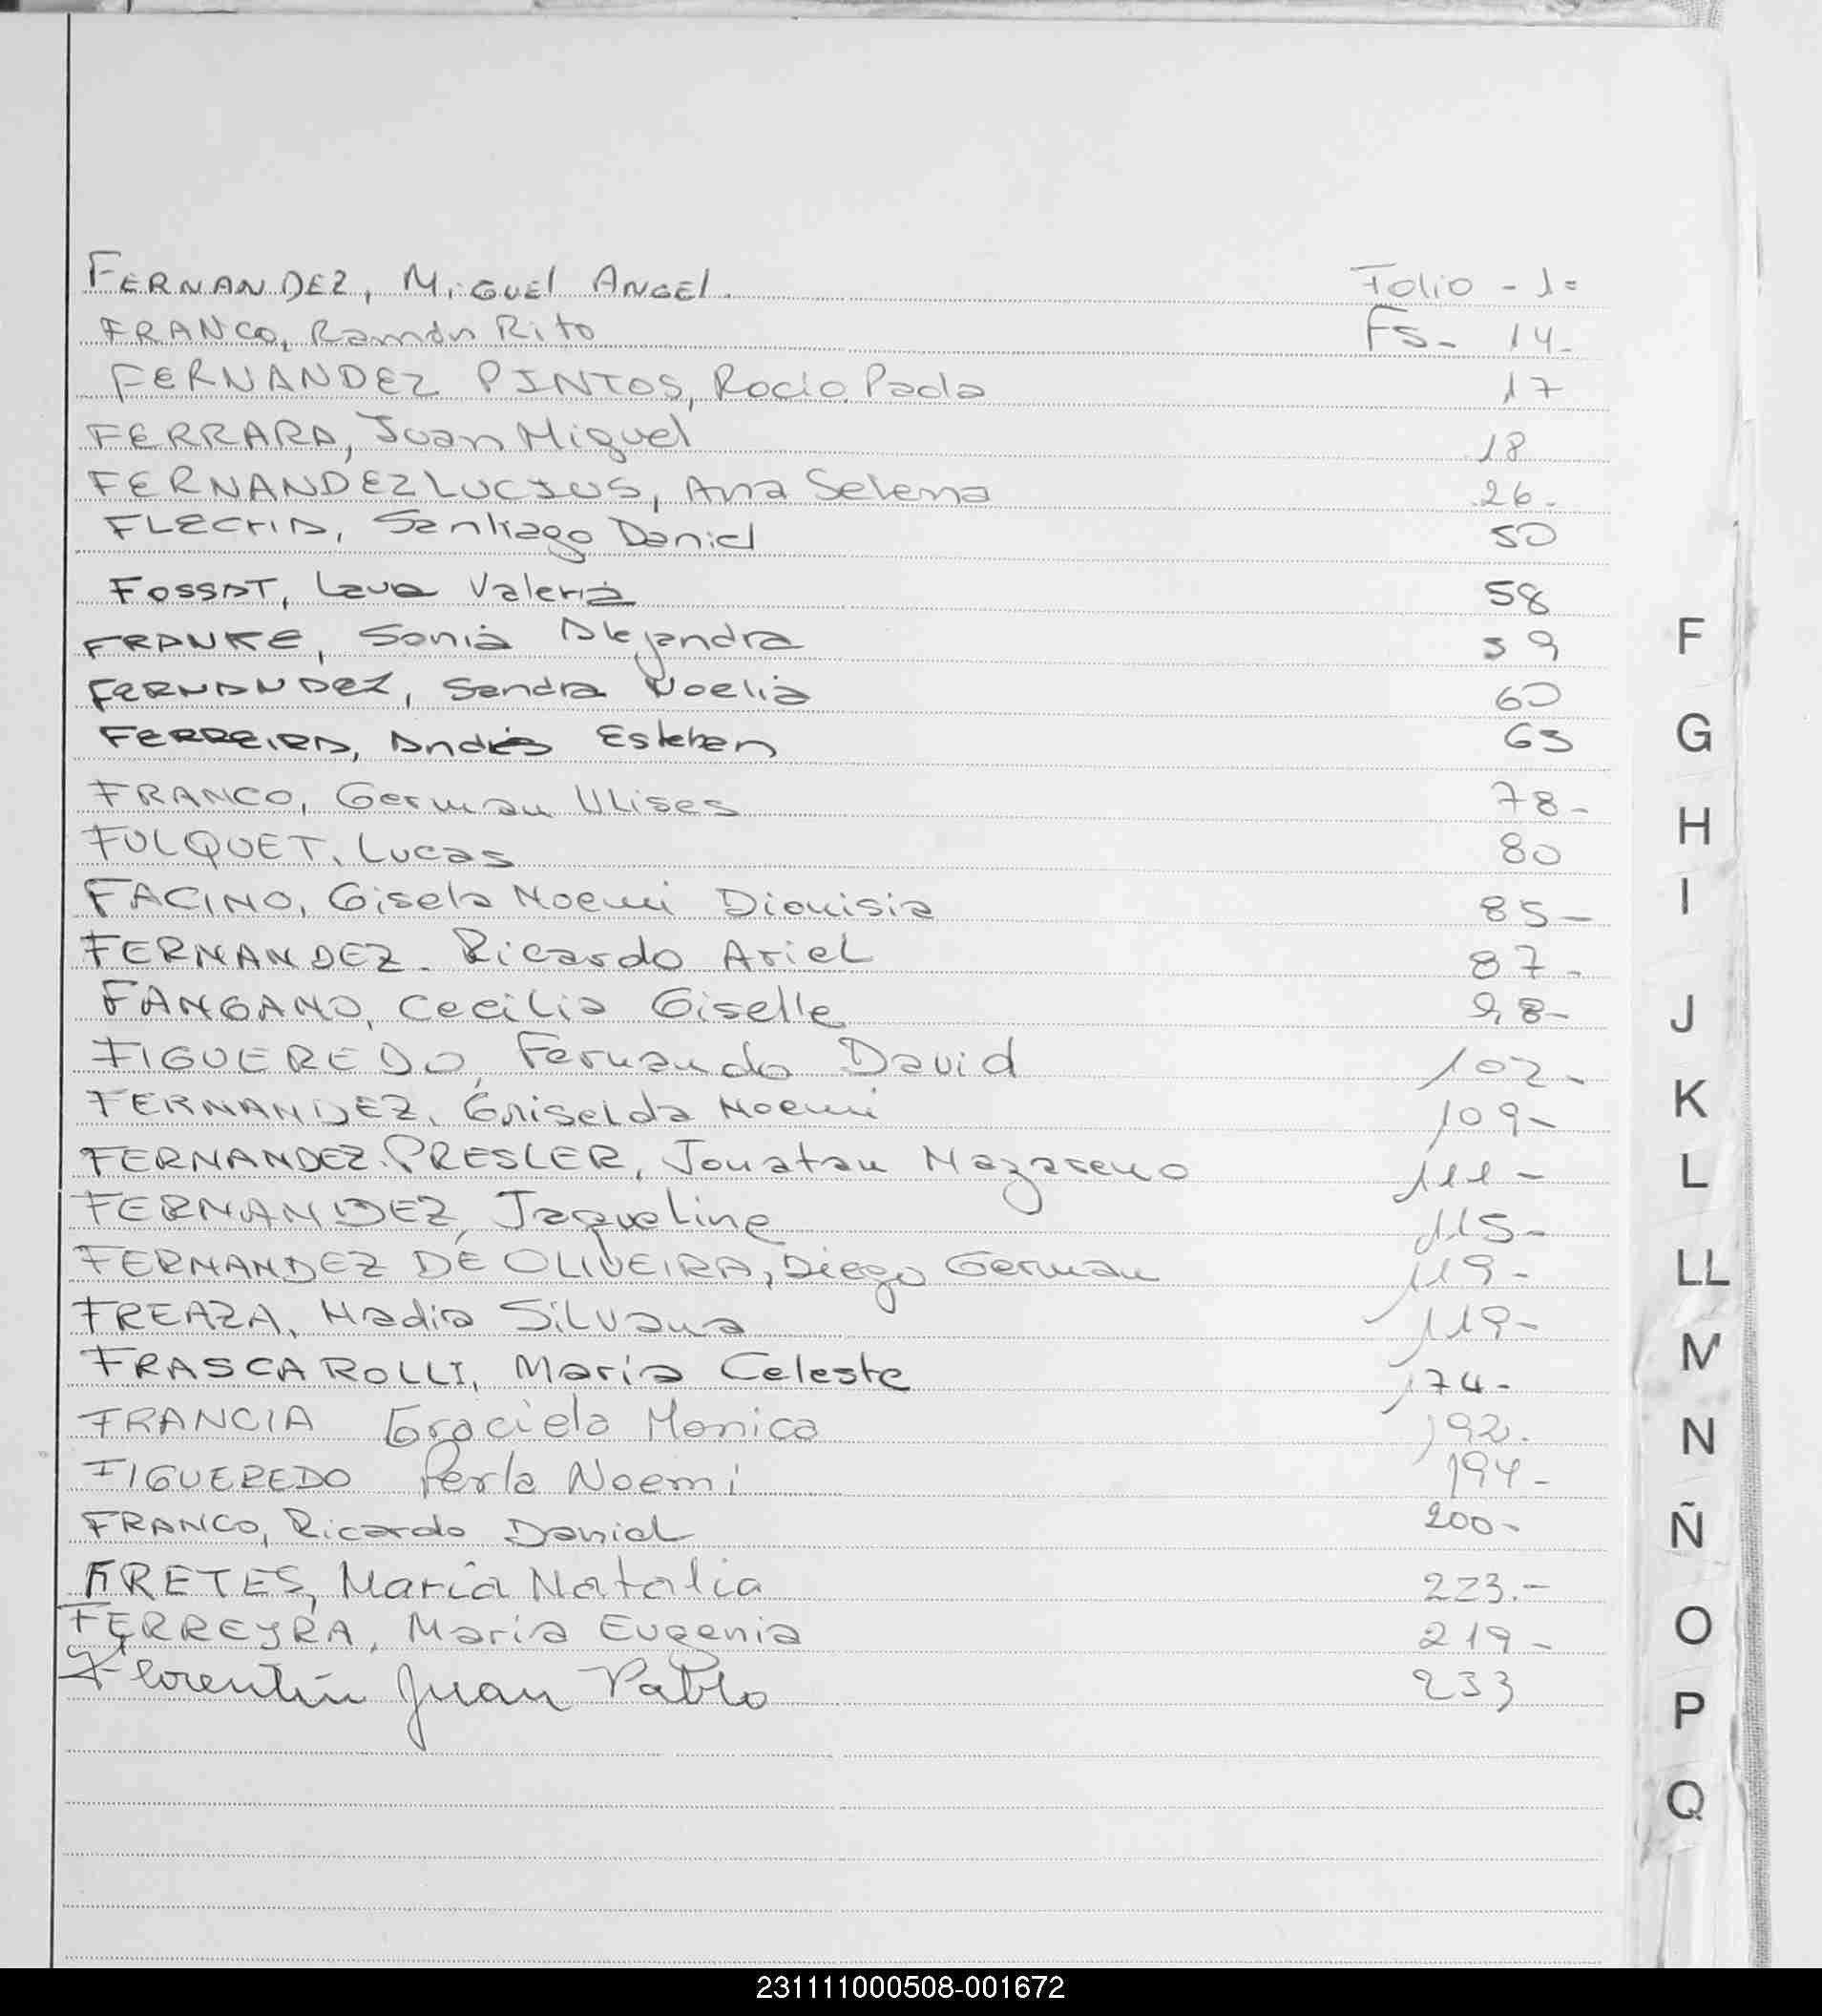 FERNANDEZ, MIGUEL ANGEL. Folio - 1=
FRANCO, Ramón Rito Fs- 14-
FERNANDEZ PINTOS, Rocio Paola 17
FERRARA, Juan Miguel 18
FERNANDEZ LUCIUS, Ana Selena 26-
FLECHA, Santiago Daniel 50
FOSSAT, Laura Valeria 58
FRANKE, Sonia Alejandra 59
FERNANDEZ, Sandra Noelia 60
FERREIRA, Andrés Esteban 63
FRANCO, German Ulises 78-
FULQUET, Lucas 80
FACINO, Gisela Noemi Dionisia 85-
FERNANDEZ- Ricardo Ariel 87-
FANGANO, Cecilia Giselle 98-
FIGUEREDO, Fernando David 102-
FERNANDEZ, Griselda Noemi 109-
FERNANDEZ PRESLER, Jonatan Nazareno 111-
FERNANDEZ, Jaqueline 115-
FERNANDEZ DE OLIVEIRA, Diego German 119-
FREAZA, Nadia Silvana 119-
FRASCAROLLI, Maria Celeste 174-
FRANCIA Graciela Monica 192.
FIGUEREDO Perla Noemi 194-
FRANCO, Ricardo Daniel 200-
FRETES, María Natalia 223.-
FERREYRA, Maria Eugenia 219-
Florentín Juan Pablo 233
F
G
H
I
J
K
L
LL
M
N
Ñ
O
P
Q
231111000508-001672